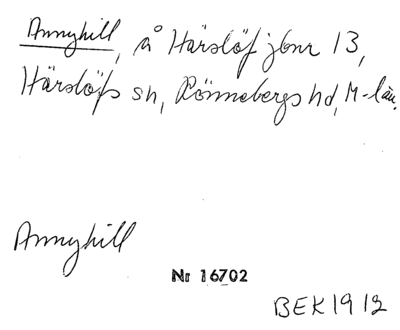 Annyhill, å Härslöf jbnr 13,
Härslöfs sn, Rönnebergs hd, M-län.
Annyhill
Nr 16702
BEK 1912